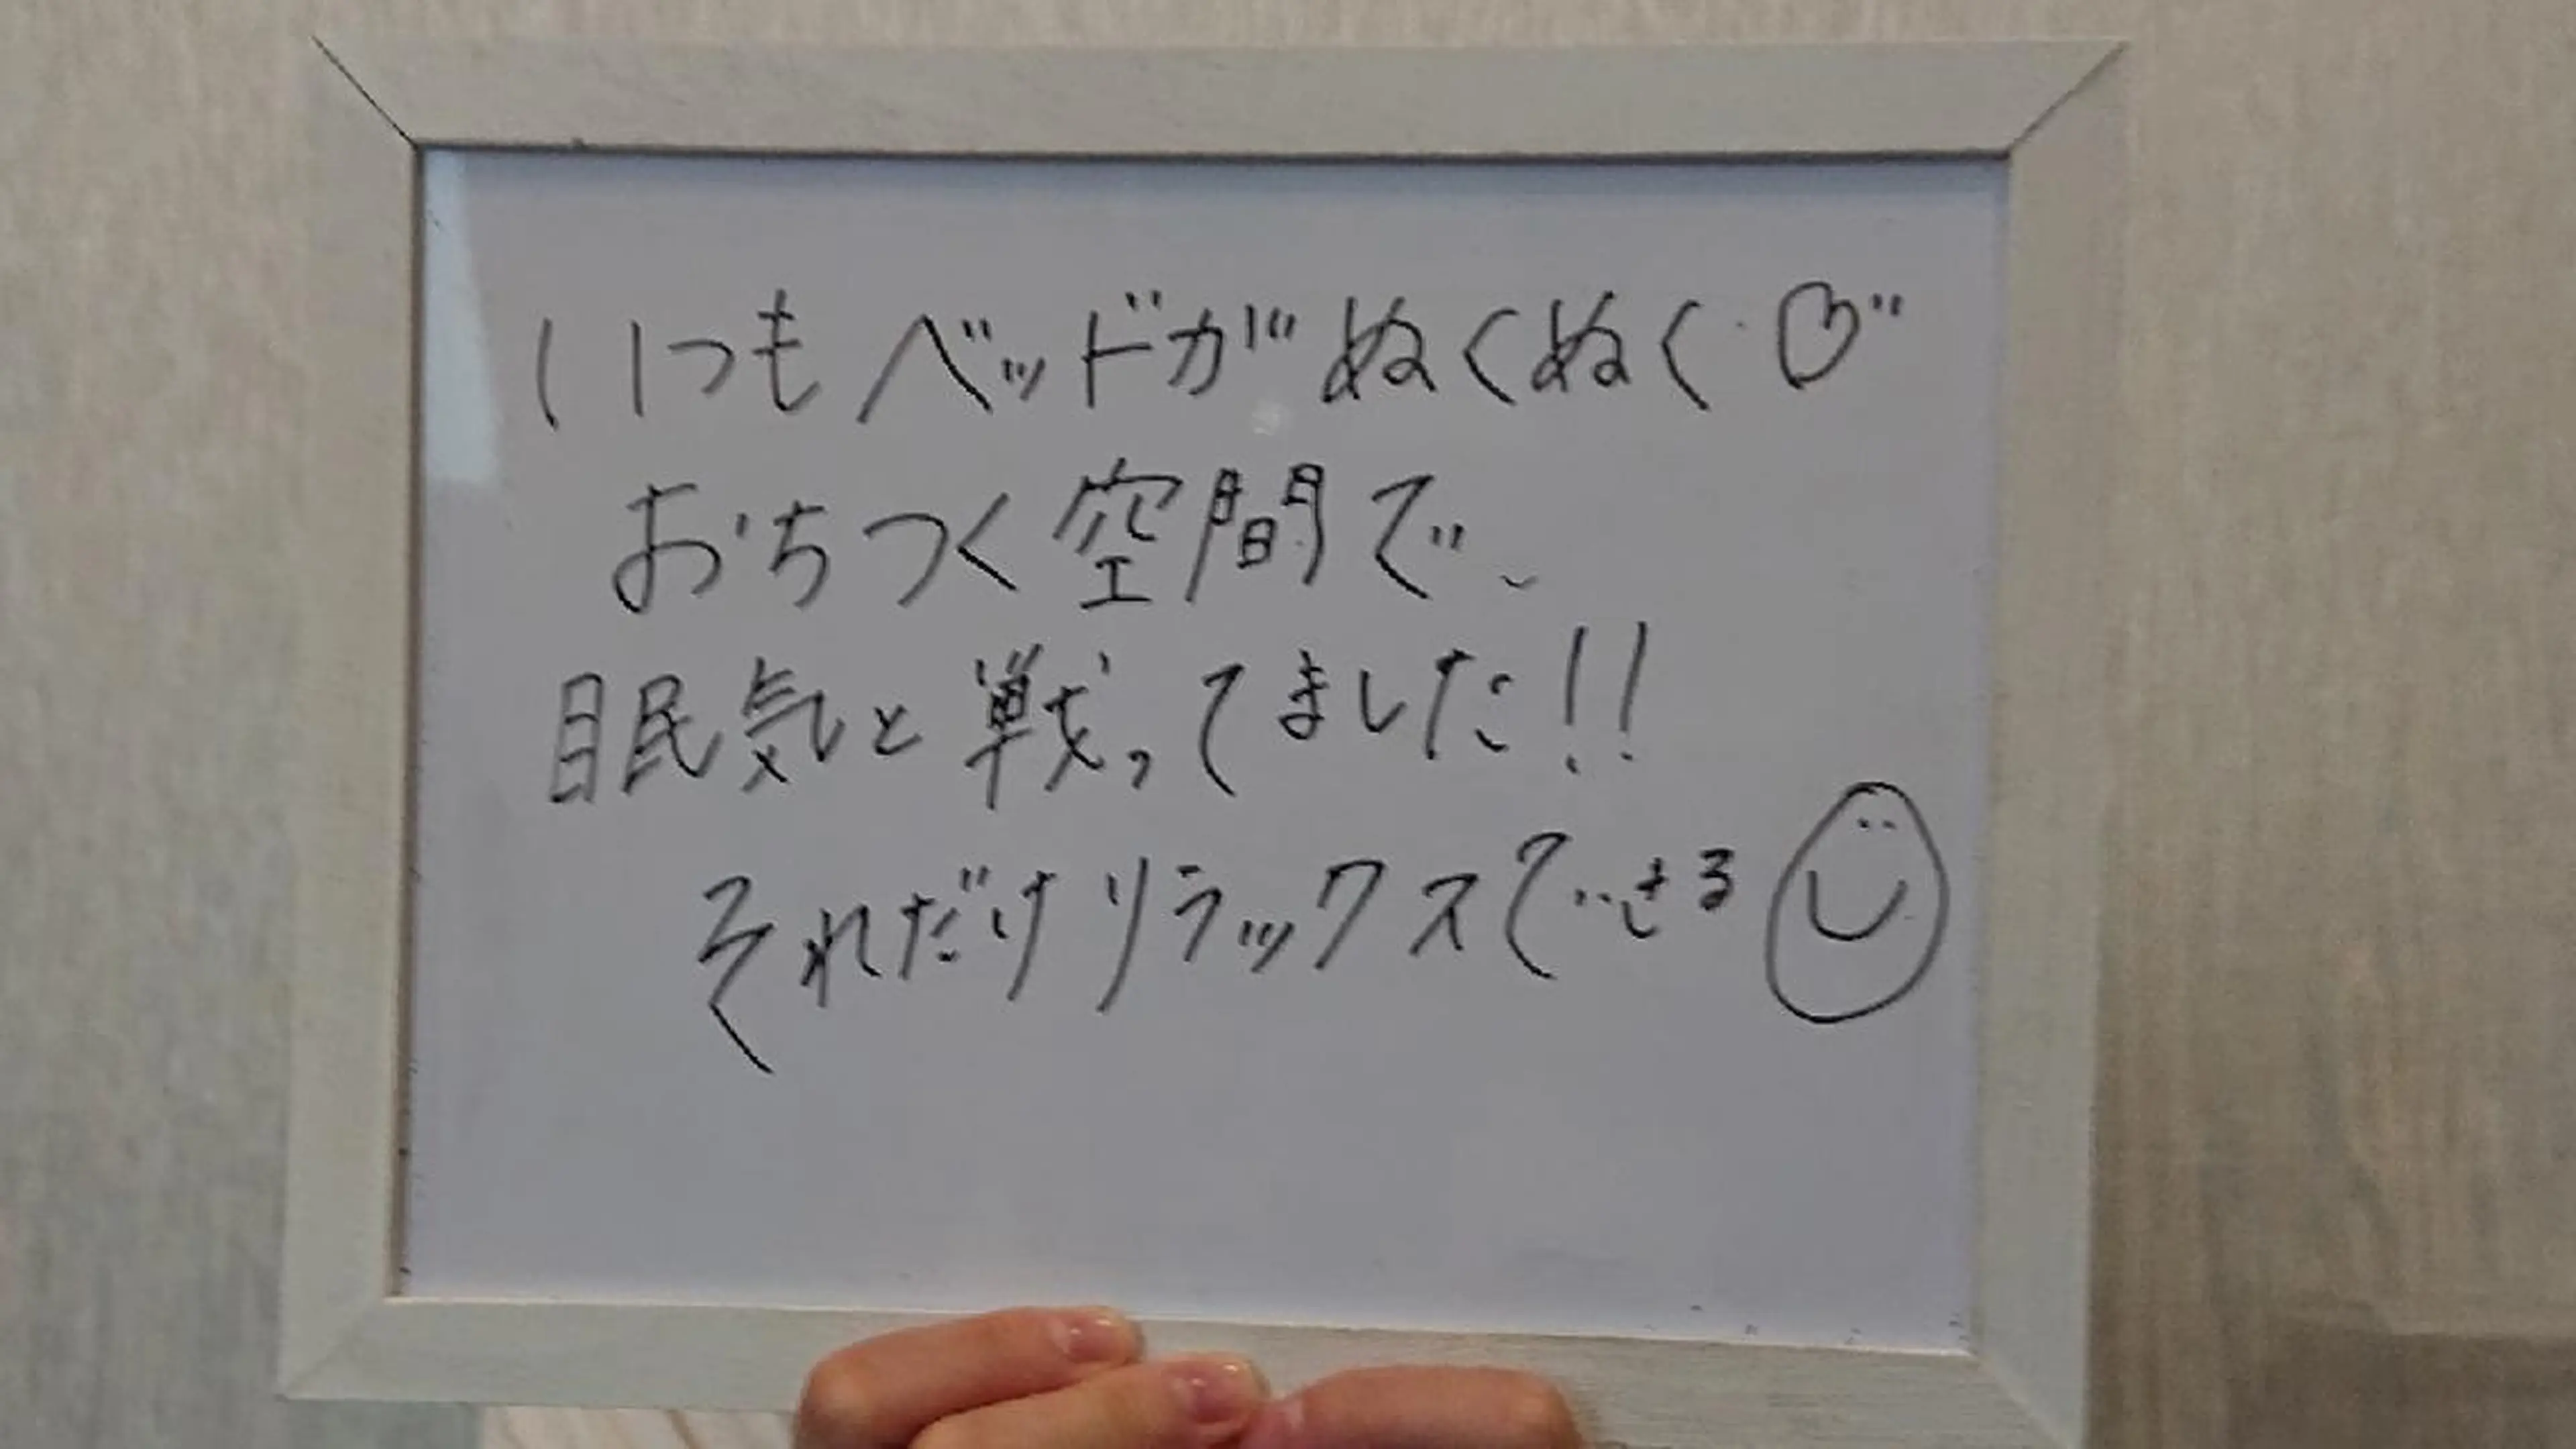 いつもベッドがぬくぬく♡"
おちつく空間で、
眠気と戦ってました!!
それだけリラックスできる